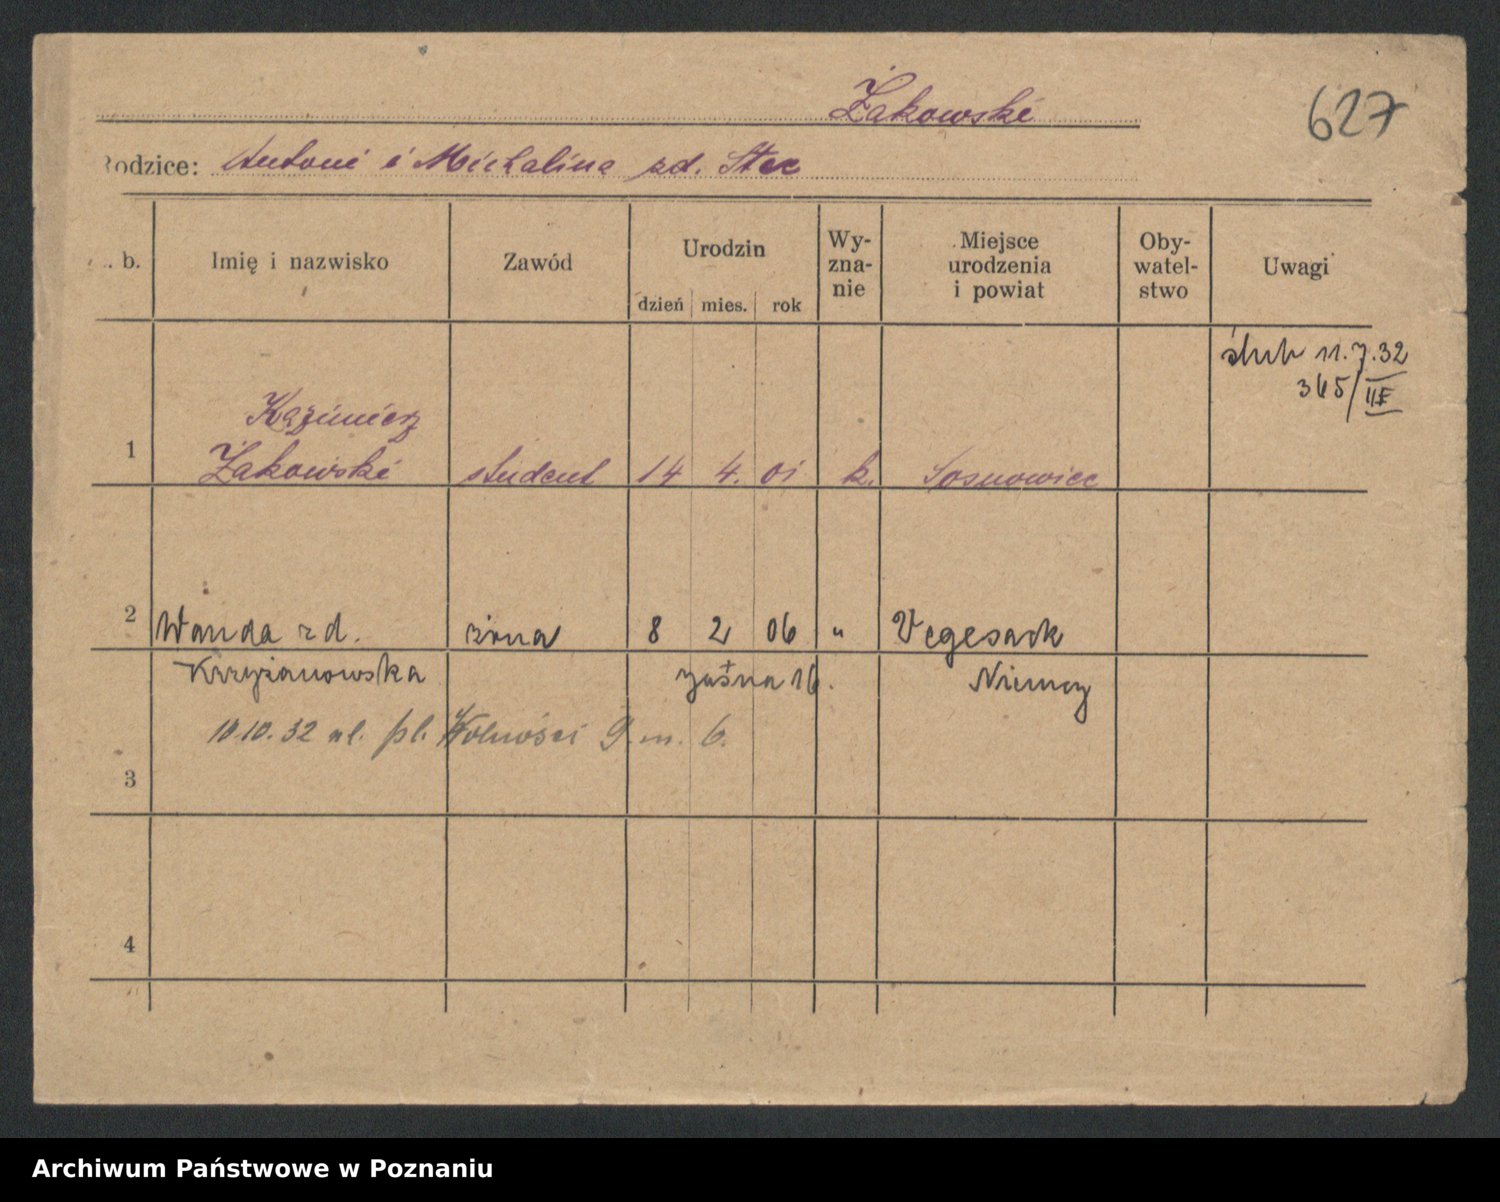 Żakowski
627
Rodzice: Antoni i Michalina zd. Stec
. b.
Imię i nazwisko
Zawód
Urodzin
dzień mies. rok
Wy-
zna-
nie
Miejsce
urodzenia
i powiat
Oby-
watel-
stwo
Uwagi
ślub 11.7.32
365/III
1
Kazimierz
Żakowski student 14 4. 01 k. Sosnowiec
2 Wanda zd. żona 8 2 06 " Vegesack
Krzyżanowska Jasna 16. Niemcy
10.10.32 ul. pl. Wolności 9 m. 6.
3
4
Archiwum Państwowe w Poznaniu